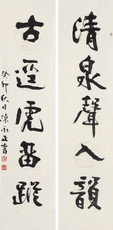 清泉聲入韻
古逕虎留蹤
癸卯秋日